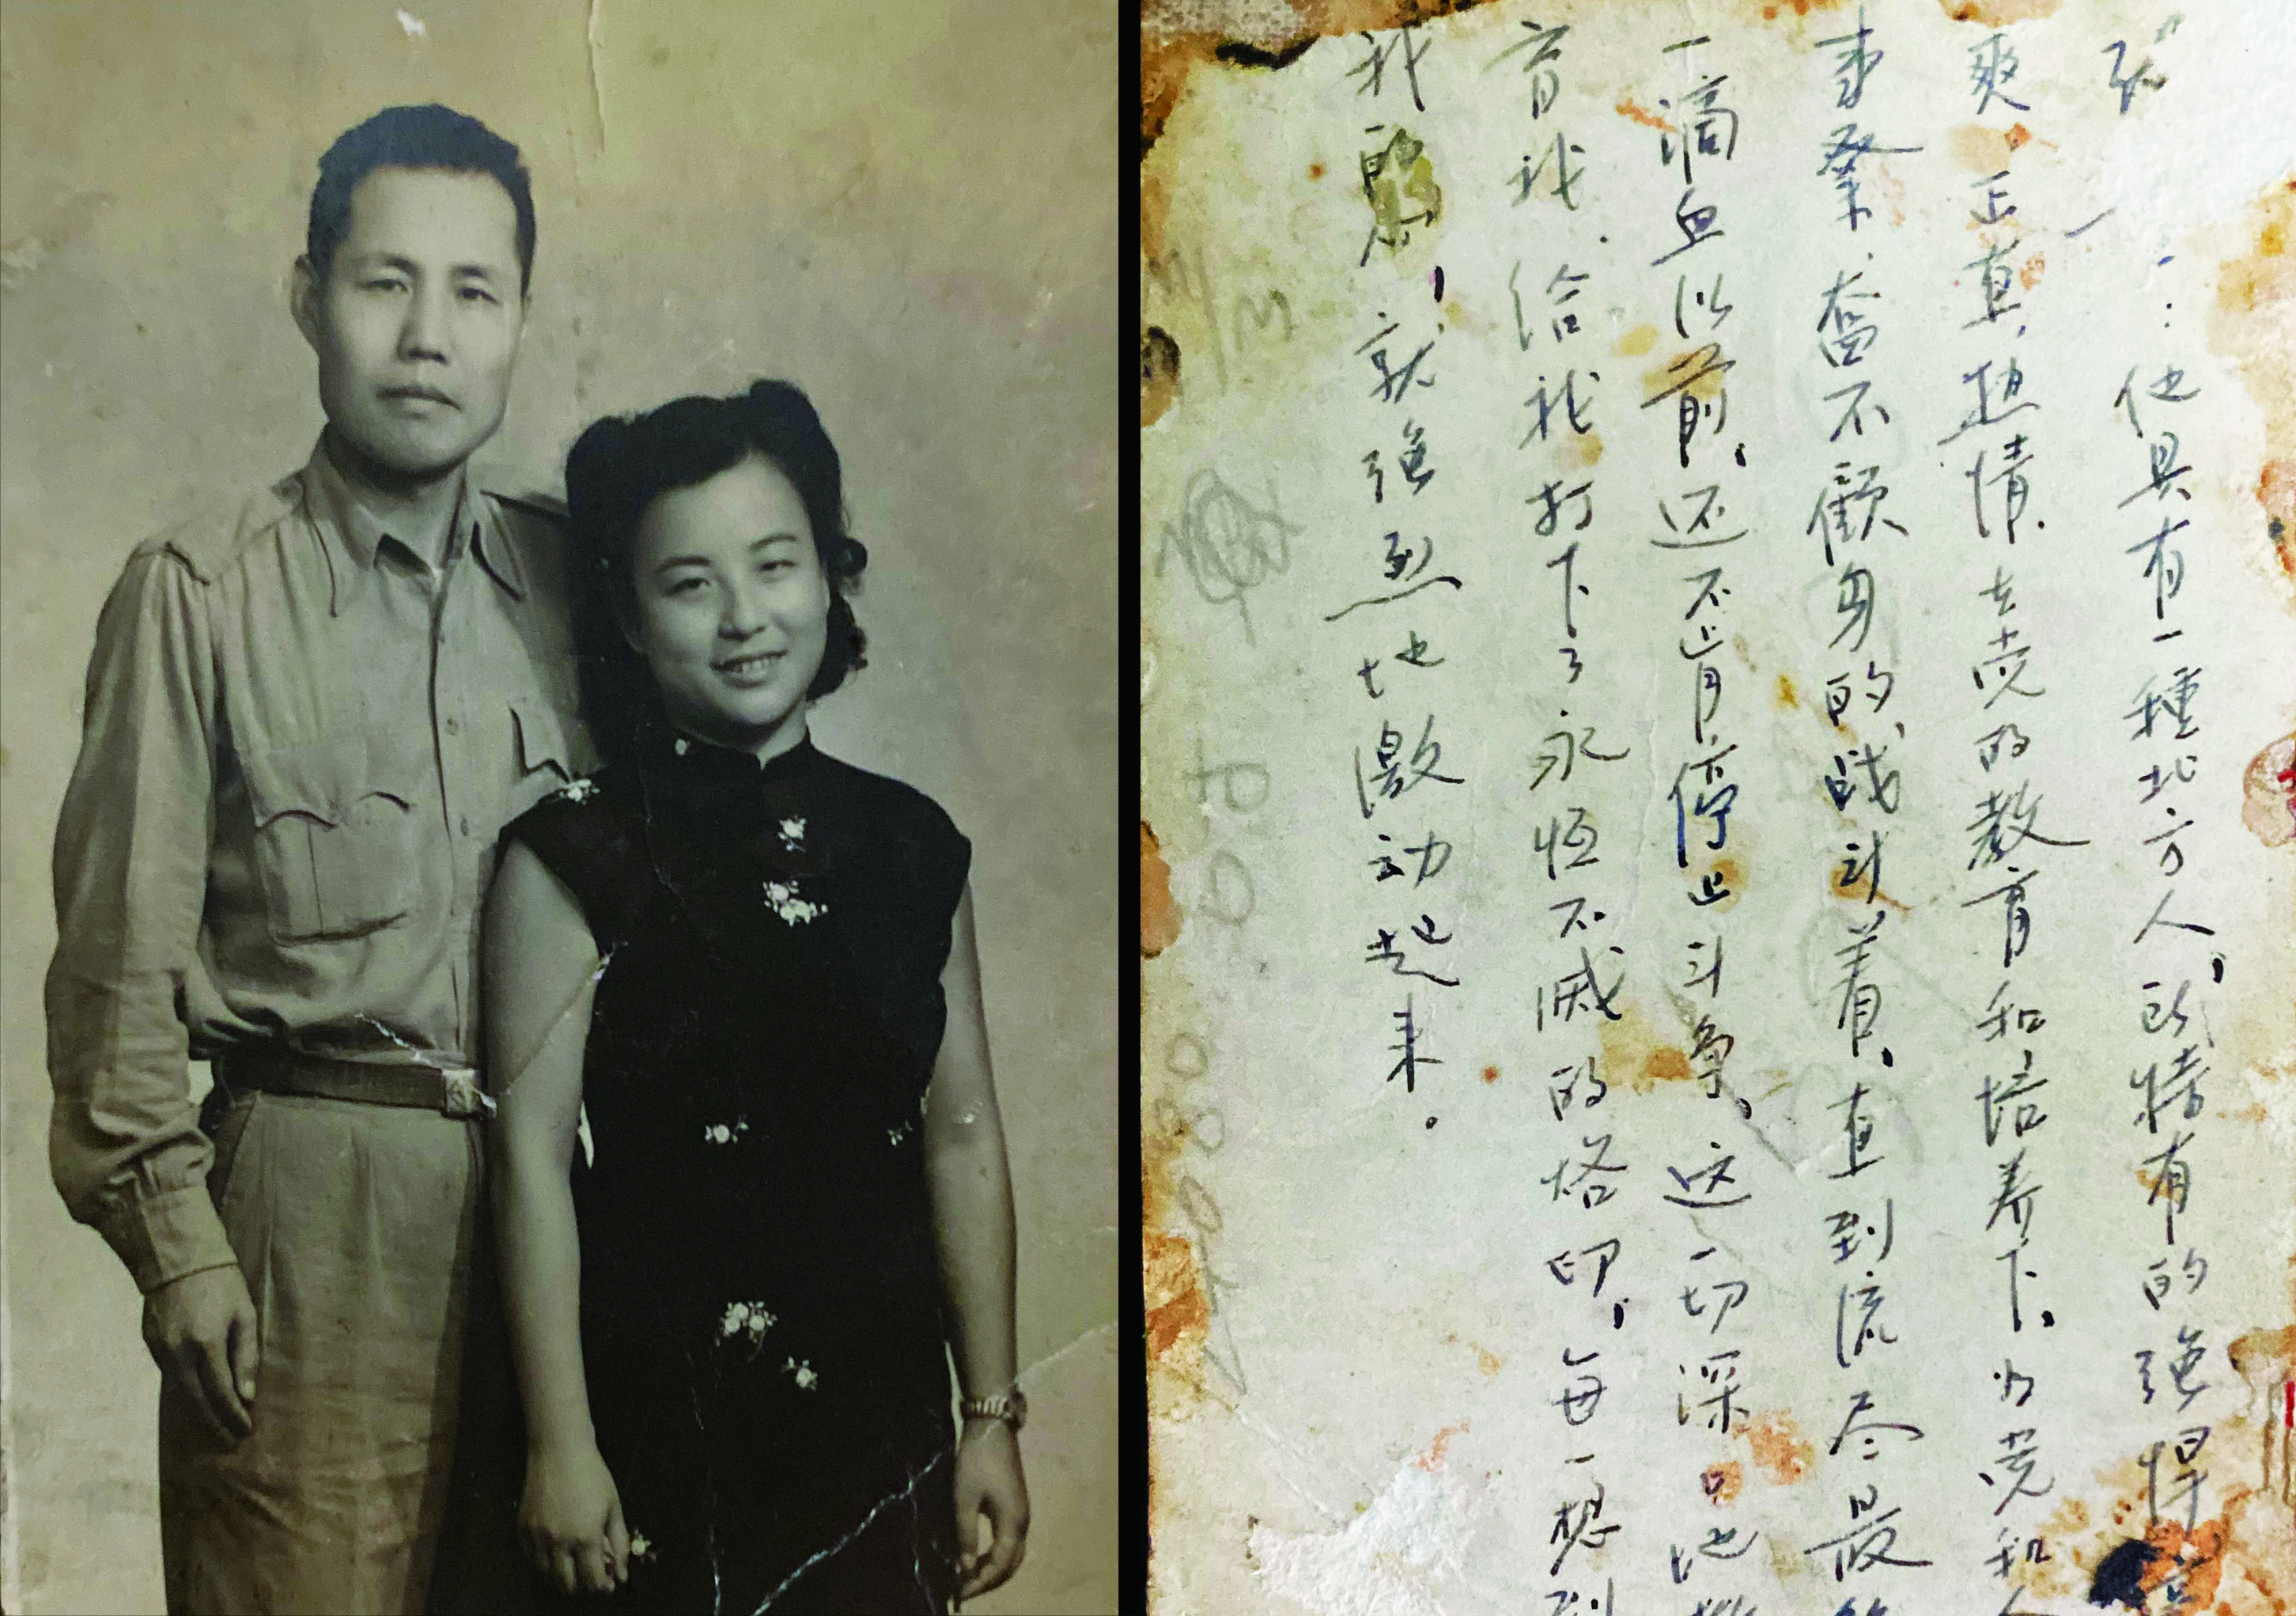 他具有一種北方人，所特有的強悍
爽．正直．热情．在党的教育和培养下．为党和
事業．奮不顧身的．战斗着．直到流尽最
一滴血以前．还不肯停止斗争．这一切深口地
育我．给我打下了永恒不滅的烙印．每一想到
我的就強烈地激动起来。